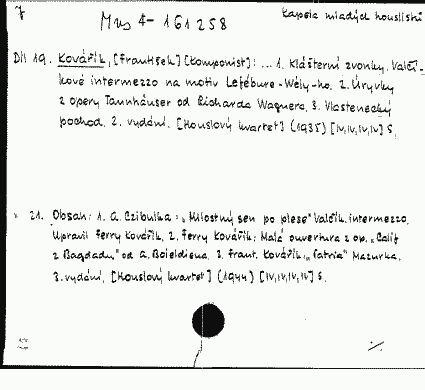 7
Mus 4-161258
Kapsle mladých houslistů
Díl 19. Kovářík, [František] [Komponist]: ... 1. Klášterní zvonky. Valčí-
kové intermezzo na motiv Lefébure-Wély-ho. 2. Úryvky
z opery Tannhäuser od Richarda Wagnera. 3. Vlastenecký
pochod. 2. vydání. [Houslový kvartet] (1935) [IV, IV, IV, IV] S.
" 21. Obsah: 1. A. Czibulka: „Milostný sen po plese" Valčík. intermezzo.
Upravil Ferry Kovářík. 2. Ferry Kovářík: Malá ouvertura z op. „Kalif
z Bagdadu" od A. Boieldiena. 3. Frant. Kovářík: „Patria" Mazurka.
3. vydání. [Houslový kvartet] (1944) [IV, IV, IV, IV] S.